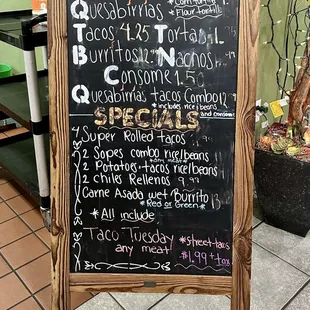 Quesabirrias *Corn tortilla
* Flour tortilla
Tacos 4.25 Tort
Burritos 12. Nachos
Consome 1.50
Quesabirrias tacos Combo 12
*includes rice/beans and consome
SPECIALS
4 Super Rolled tacos
2 Sopes combo rice/beans
2 Potatoes tacos rice/beans
2 chiles Rellenos 9.99
Carne Asada wet Burrito 13
*Red or Green*
* All include
Taco Tuesday *street tacos
any meat *$1.99 + tax